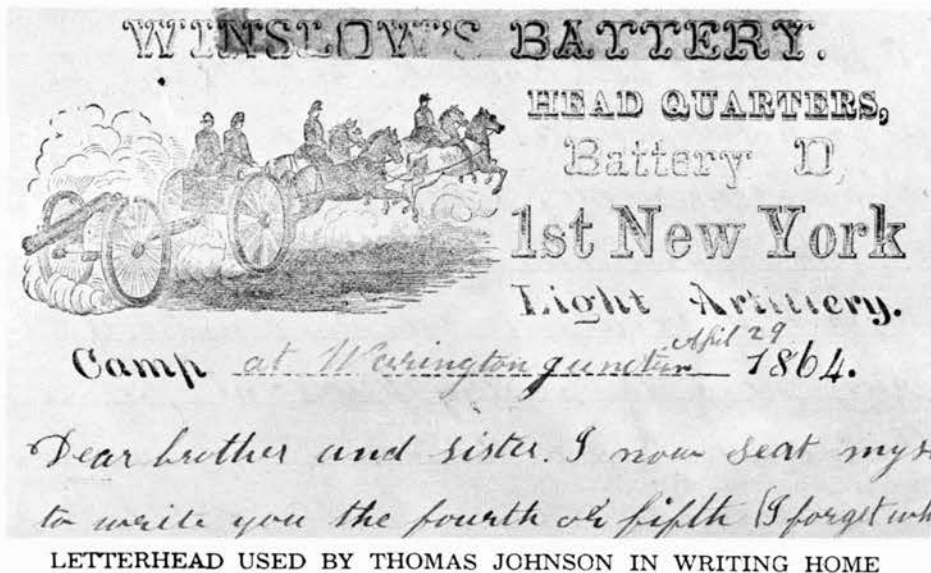 WINSLOW'S BATTERY.
HEAD QUARTERS,
Battery D,
1st New York
Light Artillery.
April 29
Camp at Warrington junction 1864.
Dear brother and sister. I now seat mys
to write you the fourth or fifth (I forget wh
LETTERHEAD USED BY THOMAS JOHNSON IN WRITING HOME